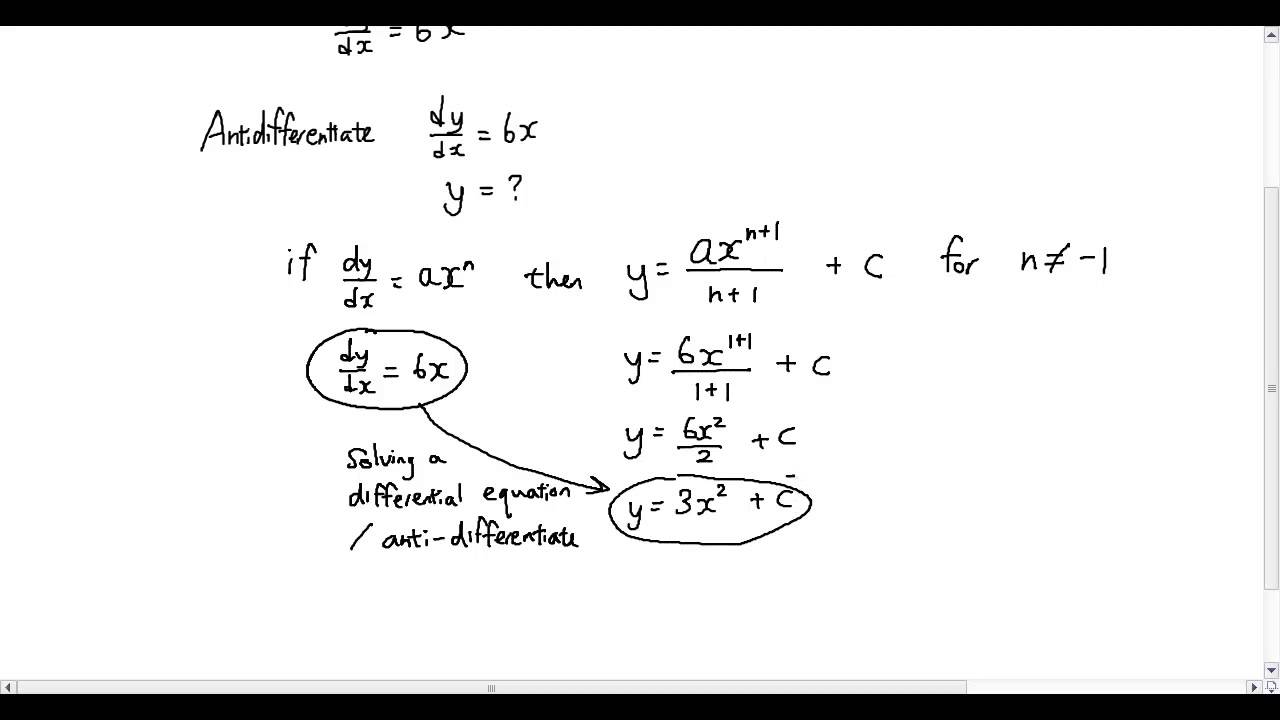 dy/dx = 6x
Antidifferentiate dy/dx = 6x
y = ?
if dy/dx = ax^n then y = ax^(n+1)/(n+1) + C for n ≠ -1
dy/dx = 6x
y = 6x^(1+1)/(1+1) + C
y = 6x²/2 + C
y = 3x² + C
Solving a
differential equation
/ anti-differentiate